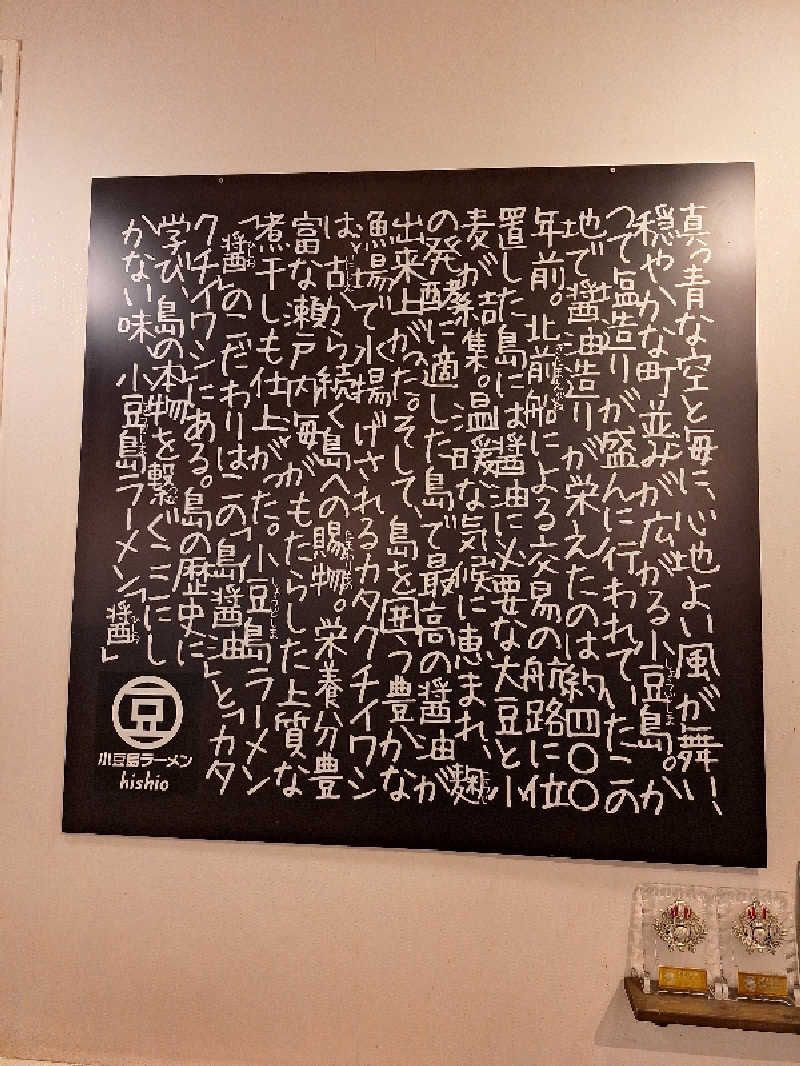 真っ青な空と海に、心地よい風が舞い、
穏やかな町並みが広がる小豆島。か
つて塩造りが盛んに行われていたこの
地で醤油造りが栄えたのは約四〇〇
年前。北前船による交易の航路に位
置した島には醤油に必要な大豆と小
麦が結集。温暖な気候に恵まれ、麹
の発酵に適した島で最高の醤油が
出来上がった。そして、島を囲う豊かな
魚場で水揚げされるカタクチイワシ
は、古くから続く島への賜物。栄養分豊
富な瀬戸内海がもたらした上質な
煮干しも仕上がった。小豆島ラーメン
「醤」のこだわりはこの「島醤油」と「カタ
クチイワシ」にある。島の歴史に
学び、島の本物を繋ぐここにし
かない味 小豆島ラーメン「醤」
豆
小豆島ラーメン
hishio